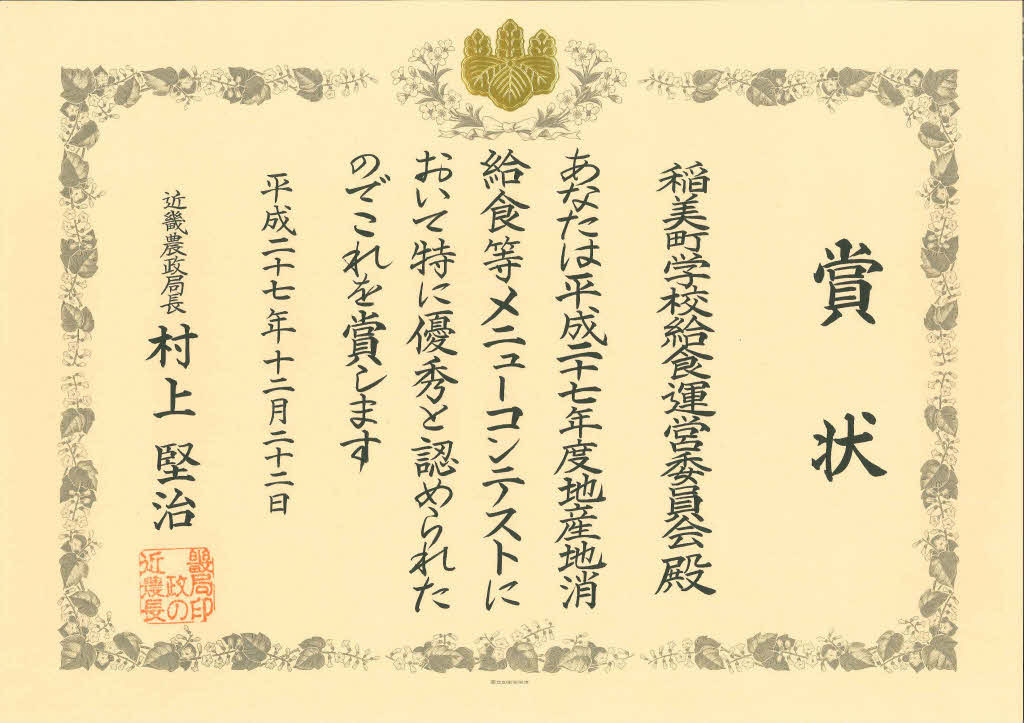 賞状
稲美町学校給食運営委員会殿
あなたは平成二十七年度地産地消
給食等メニューコンテストに
おいて特に優秀と認められた
のでこれを賞します
平成二十七年十二月二十二日
近畿農政局長 村上 堅治